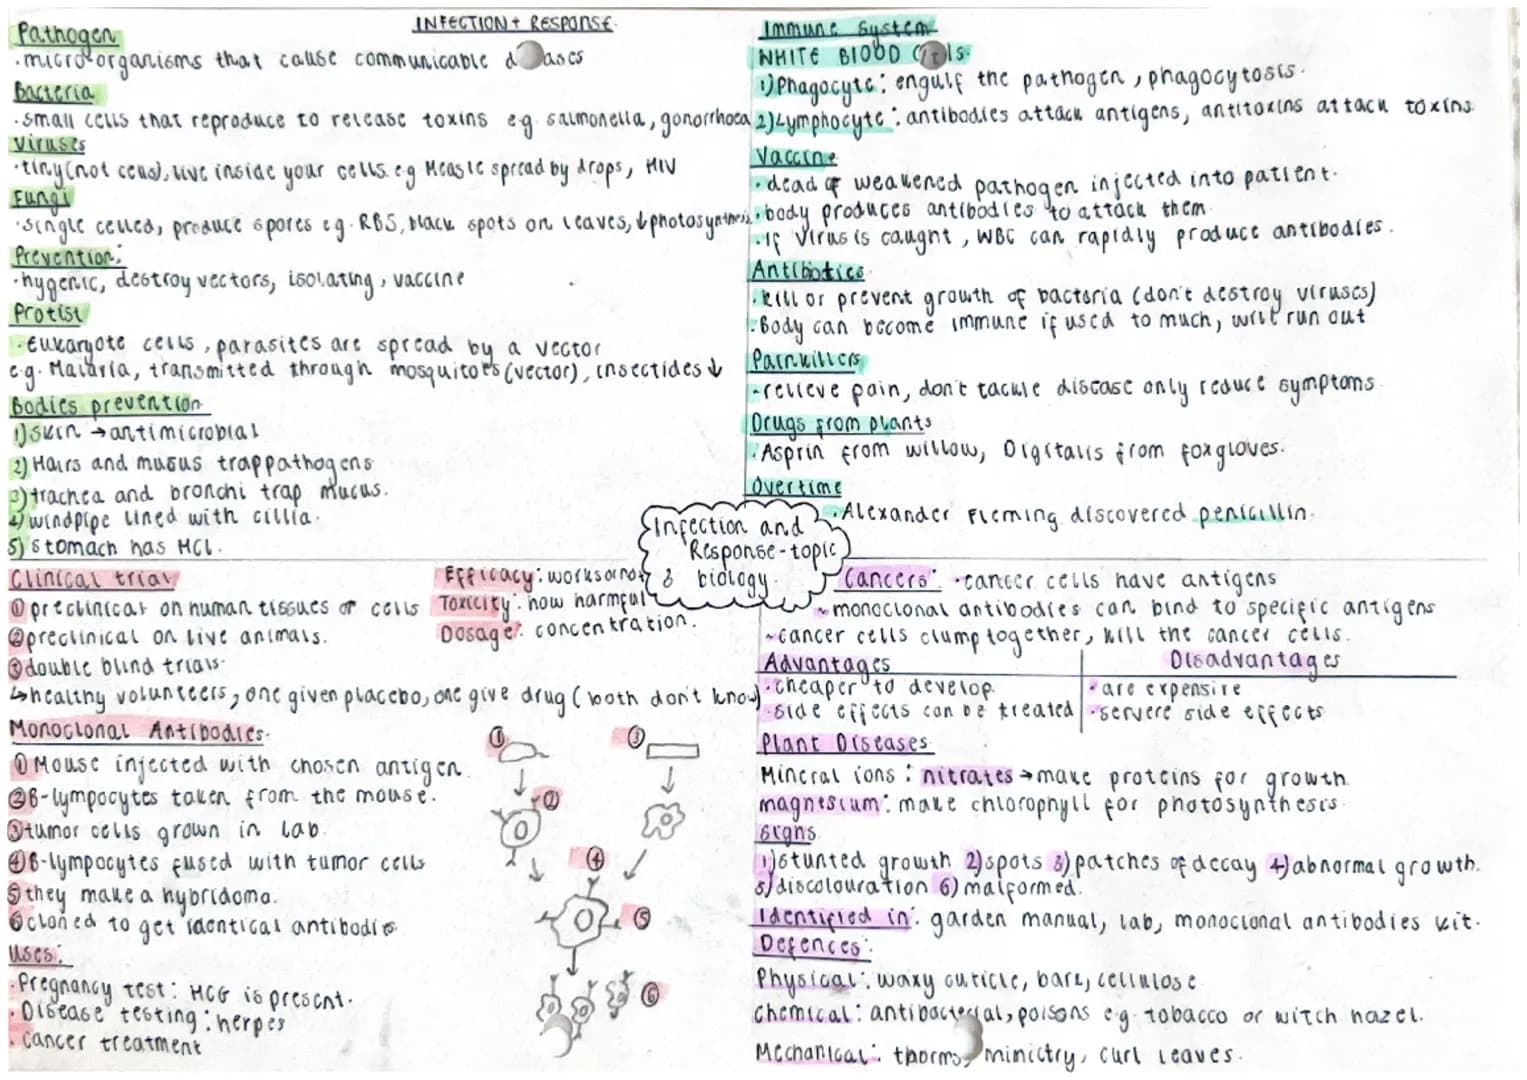 INFECTION + RESPONSE.
Pathogen
·micro-organisms that cause communicable d ases
Bacteria
·small cells that reproduce to release toxins eg. salmonella, gonorrhoea
Viruses
·tiny (not cells), live inside your cells. e.g Measle spread by drops, HIV
Fungi
·single celled, produce spores eg. RBS, black spots on leaves, ↓photosynthesis.
Prevention:
·hygenic, destroy vectors, isolating, vaccine
Protist
·Eukaryote cells, parasites are spread by a vector
e.g. Malaria, transmitted through mosquitoes (vector), insectides ↓
Bodies prevention
1) Skin → antimicrobial
2) Hairs and musus trap pathogens
3) trachea and bronchi trap mucus.
4) windpipe lined with cillia.
5) stomach has HCL.
Immune System
WHITE BLOOD Cells.
1) Phagocyte: engulf the pathogen, phagocytosis.
2) Lymphocyte: antibodies attack antigens, antitoxins attack toxins
Vaccine
·dead of weakened pathogen injected into patient.
·body produces antibodies to attack them.
·If virus is caught, WBC can rapidly produce antibodies.
Antibiotics
·kill or prevent growth of bacteria (don't destroy viruses)
·Body can become immune if used to much, will run out
Painkillers
-relieve pain, don't tackle disease only reduce symptoms
Drugs from plants
·Asprin from willow, Digitalis from foxgloves.
Overtime
·Alexander Fleming discovered penicillin.
Infection and
Response-topic
3 biology.
Clinical trial
① preclinical on human tissues or cells
② preclinical on live animals.
③ double blind trials
↳ healthy volunteers, one given placebo, one give drug (both don't know)
Efficacy: works or not
Toxicity: how harmful
Dosage: concentration.
Monoclonal Antibodies.
① Mouse injected with chosen antigen.
② B-lympocytes taken from the mouse.
③ tumor cells grown in lab.
④ B-lympocytes fused with tumor cells
⑤ they make a hybridoma.
⑥ cloned to get identical antibodies
Uses:
·Pregnancy test: HCG is present.
·Disease testing: herpes
·Cancer treatment
① ③
②
④
⑤
⑥
Cancers: ·cancer cells have antigens
~monoclonal antibodies can bind to specific antigens
~cancer cells clump together, kill the cancer cells.
Advantages Disadvantages
·cheaper to develop. ·are expensive
·side effects can be treated ·servere side effects
Plant Diseases
Mineral ions: nitrates → make proteins for growth
magnesium: make chlorophyll for photosynthesis.
signs
1) stunted growth 2) spots 3) patches of decay 4) abnormal growth.
5) discolouration 6) malformed.
Identified in: garden manual, lab, monoclonal antibodies kit.
Defences:
Physical: waxy cuticle, bark, cellulose
chemical: antibacterial, poisons e.g. tobacco or witch hazel.
Mechanical: thorns, mimictry, curl leaves.